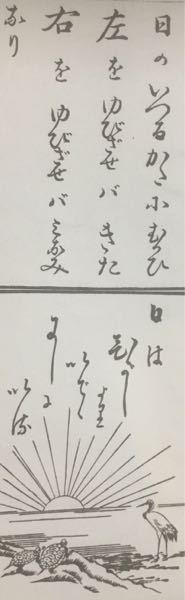 日のいづるかたにむかひ
左をゆびざせバきた
右をゆびざせバみなみ
なり
日は
ひがし
より
いで
にしに
いる